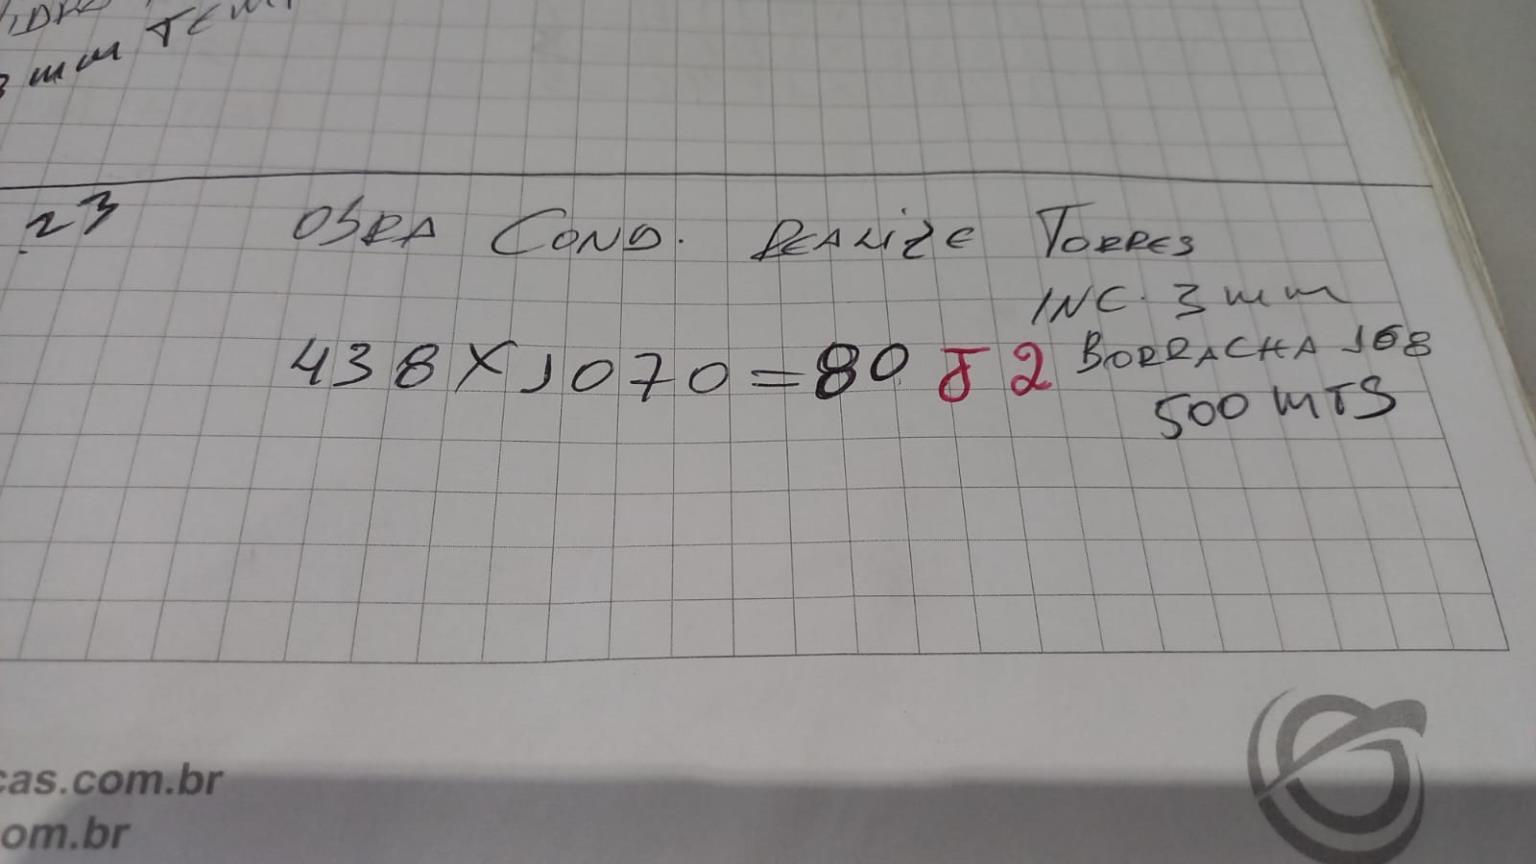 mm TEM
.23 OBRA COND. REALIZE TORRES
INC. 3mm
438X1070=80 J2 BORRACHA 168
500 MTS
cas.com.br
om.br